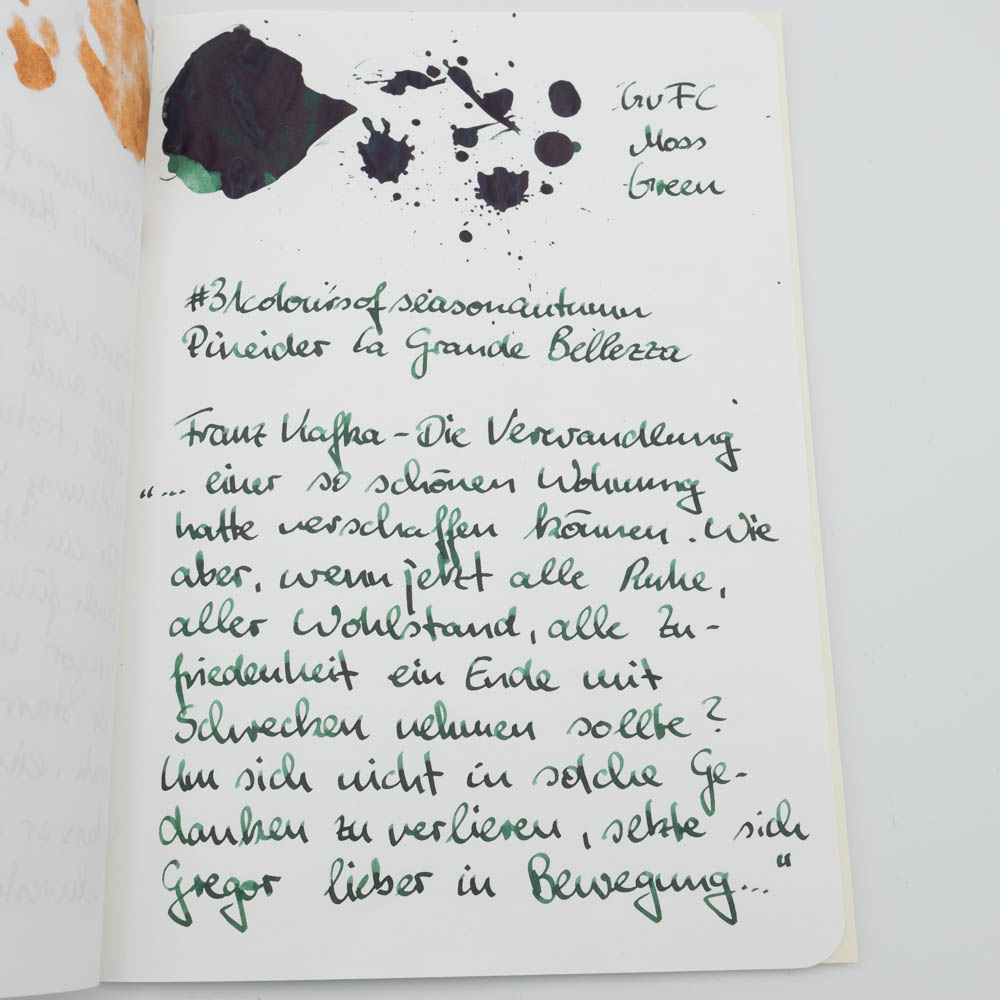 GvFC
Moss
Green
#31coloursofseasonautumn
Pineider La Grande Bellezza
Franz Kafka - Die Verwandlung
"... einer so schönen Wohnung
hatte verschaffen können. Wie
aber, wenn jetzt alle Ruhe,
aller Wohlstand, alle Zu-
friedenheit ein Ende mit
Schrecken nehmen sollte?
Um sich nicht in solche Ge-
danken zu verlieren, setzte sich
Gregor lieber in Bewegung..."